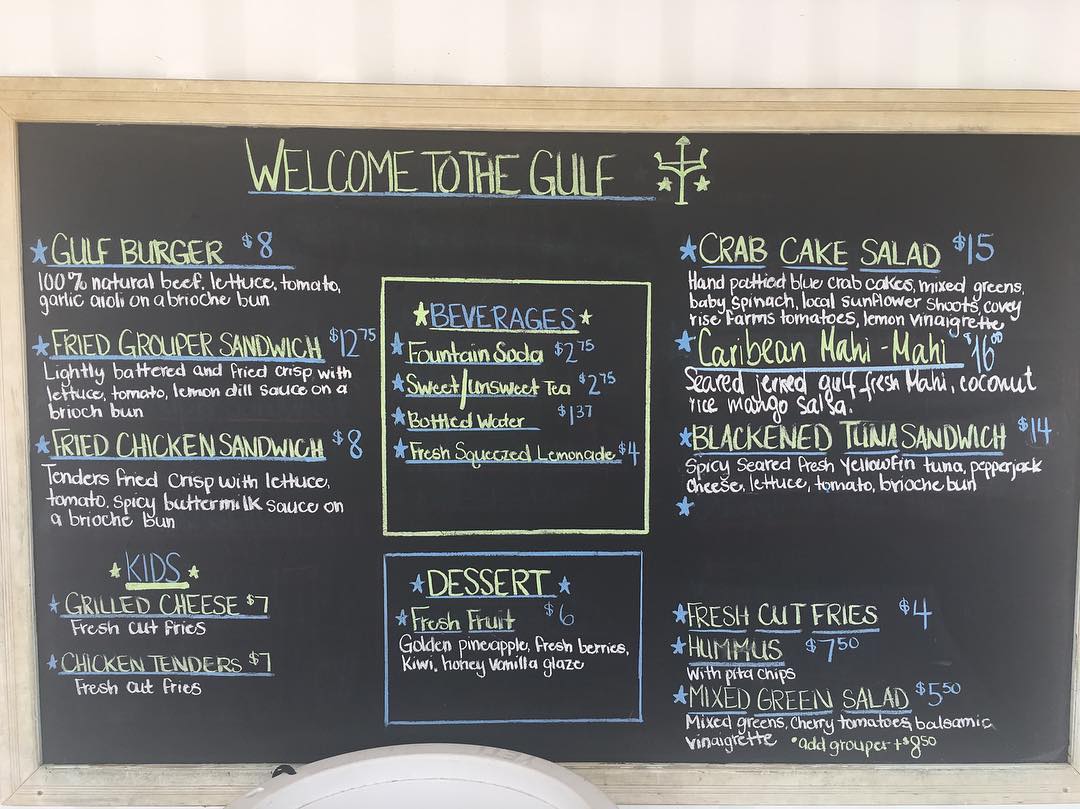 WELCOME TO THE GULF
GULF BURGER $8
100% natural beef, lettuce, tomato,
garlic aioli on a brioche bun
FRIED GROUPER SANDWICH $12 75
Lightly battered and fried crisp with
lettuce, tomato, lemon dill sauce on a
brioch bun
FRIED CHICKEN SANDWICH $8
Tenders fried crisp with lettuce,
tomato, spicy buttermilk sauce on
a brioche bun
KIDS
GRILLED CHEESE $7
Fresh cut fries
CHICKEN TENDERS $7
Fresh cut fries
BEVERAGES
Fountain Soda $2 75
Sweet/unsweet Tea $2 75
Bottled Water $1 37
Fresh Squeezed Lemonade $4
DESSERT
Fresh Fruit $6
Golden pineapple, fresh berries,
Kiwi, honey vanilla glaze
CRAB CAKE SALAD $15
Hand pattied blue crab cakes, mixed greens,
baby spinach, local sunflower shoots, covey
rise farms tomatoes, lemon vinaigrette
Caribean Mahi-Mahi $16 00
Seared jerked gulf fresh Mahi, coconut
rice mango salsa.
BLACKENED TUNA SANDWICH $14
Spicy Seared fresh yellowfin tuna, pepperjack
cheese, lettuce, tomato, brioche bun
FRESH CUT FRIES $4
HUMMUS $7 50
With pita chips
MIXED GREEN SALAD $5 50
Mixed greens, cherry tomatoes, balsamic
vinaigrette *add grouper +$8 50